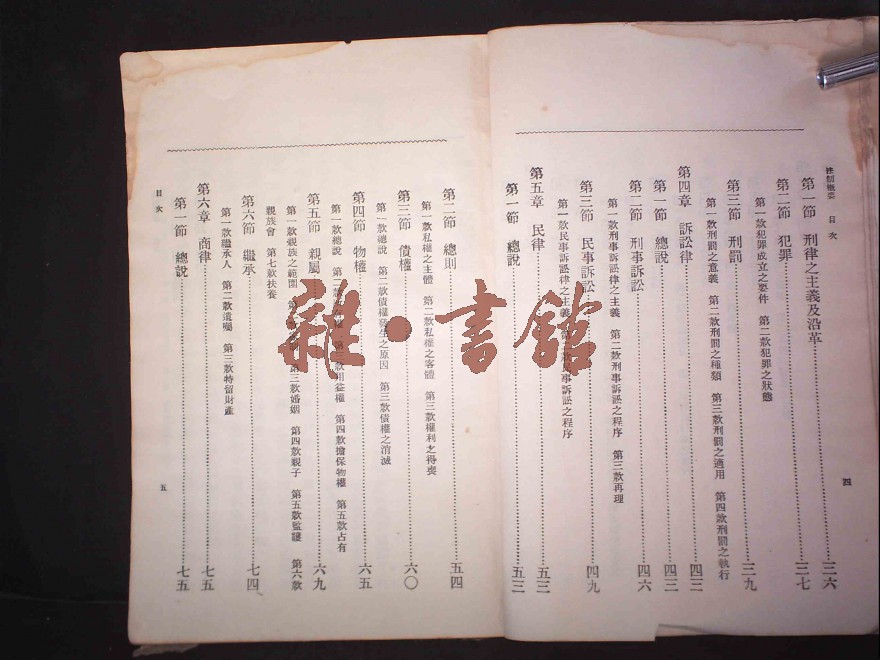 法制概要　目次
四
第一節　刑律之主義及沿革…三六
第二節　犯罪…三七
第一款犯罪成立之要件　第二款犯罪之狀態
第三節　刑罰…三九
第一款刑罰之意義　第二款刑罰之種類　第三款刑罰之適用　第四款刑罰之執行
第四章　訴訟律…四三
第一節　總說…四三
第二節　刑事訴訟…四六
第一款刑事訴訟律之主義　第二款刑事訴訟之程序　第三款再理
第三節　民事訴訟…四九
第一款民事訴訟律之主義　第二款民事訴訟之程序
第五章　民律…五三
第一節　總說…五三
第二節　總則…五四
第一款私權之主體　第二款私權之客體　第三款權利之得喪
第三節　債權…六〇
第一款總說　第二款債權發生之原因　第三款債權之消滅
第四節　物權…六五
第一款總說　第二款　用益權　第四款擔保物權　第五款占有
第五節　親屬…六九
第一款親族之範圍　第三款婚姻　第四款親子　第五款監護　第六款
親族會　第七款扶養
第六節　繼承…七四
第一款繼承人　第二款遺囑　第三款特留財產
第六章　商律…七五
第一節　總說…七五
目次
五
雜·書館